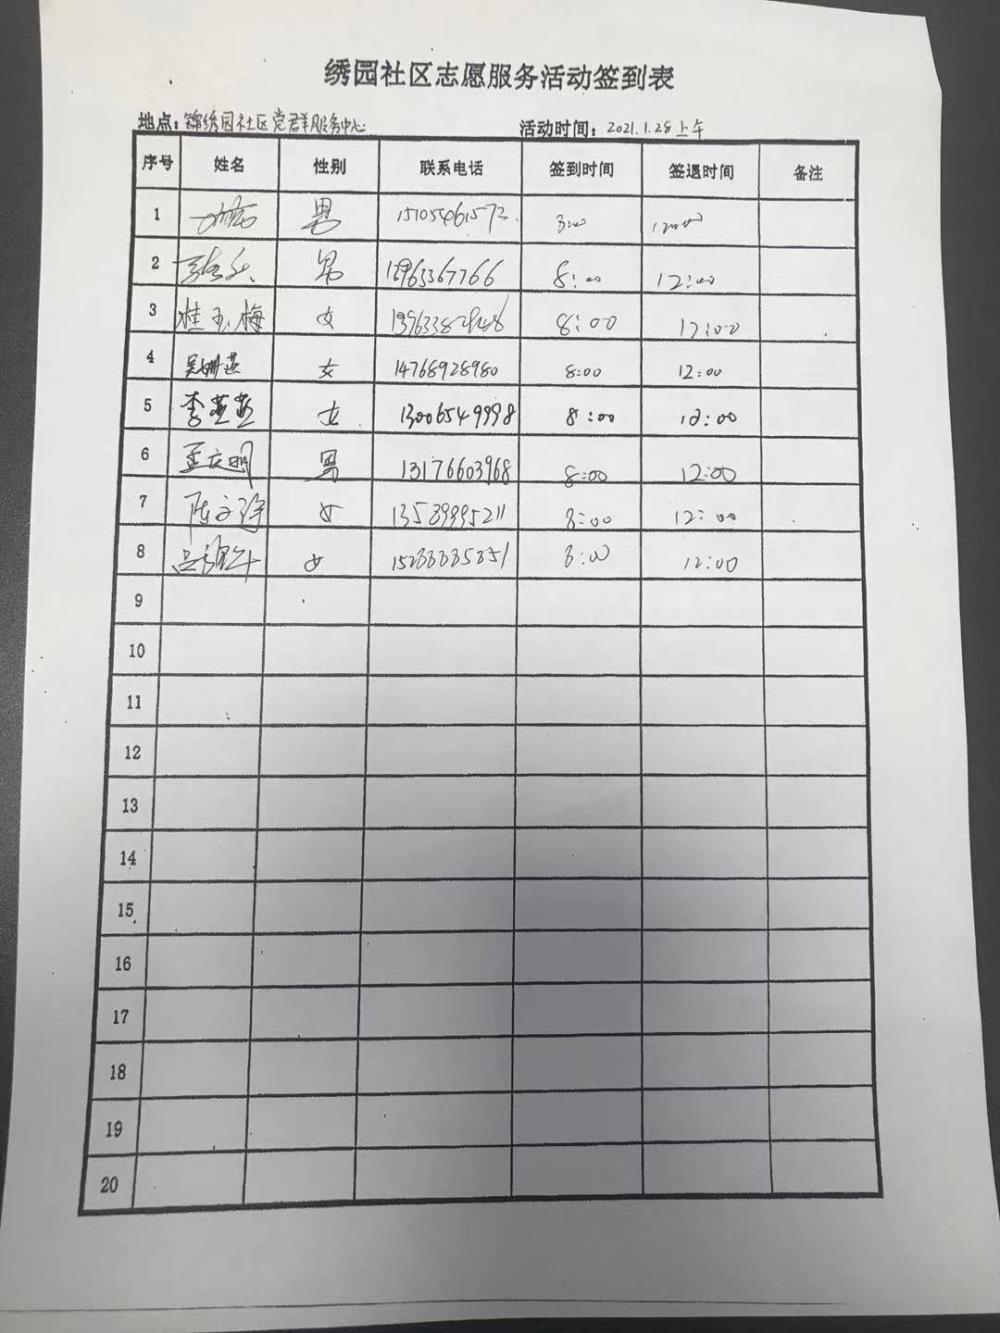 绣园社区志愿服务活动签到表
地点：锦绣园社区党群服务中心 活动时间：2021.1.28上午
序号 姓名 性别 联系电话 签到时间 签退时间 备注
1 男 15105461572 8:00 12:00
2 男 13963367766 8:00 12:00
3 桂玉梅 女 8:00 12:00
4 吴姗燕 女 14768928980 8:00 12:00
5 李燕燕 女 13006549998 8:00 12:00
6 孟庆明 男 13176603968 8:00 12:00
7 女 13589995211 8:00 12:00
8 女 8:00 12:00
9
10
11
12
13
14
15
16
17
18
19
20